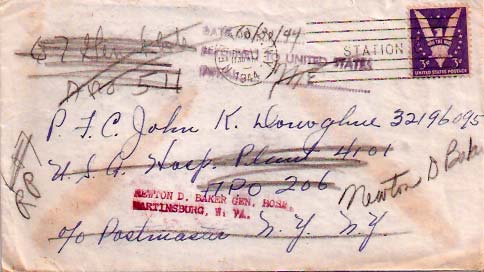 10/30/44
DATE
RETURNED TO UNITED STATES
1944
STATION
WIN THE WAR
3¢ 3¢
UNITED STATES POSTAGE
APO 511
P.F.C. John K. Donoghue 32196095
U.S.A. Hosp. Plant 4101
APO 206
Newton D Baker
NEWTON D. BAKER GEN. HOSP.
MARTINSBURG, W. VA.
c/o Postmaster N.Y. N.Y.